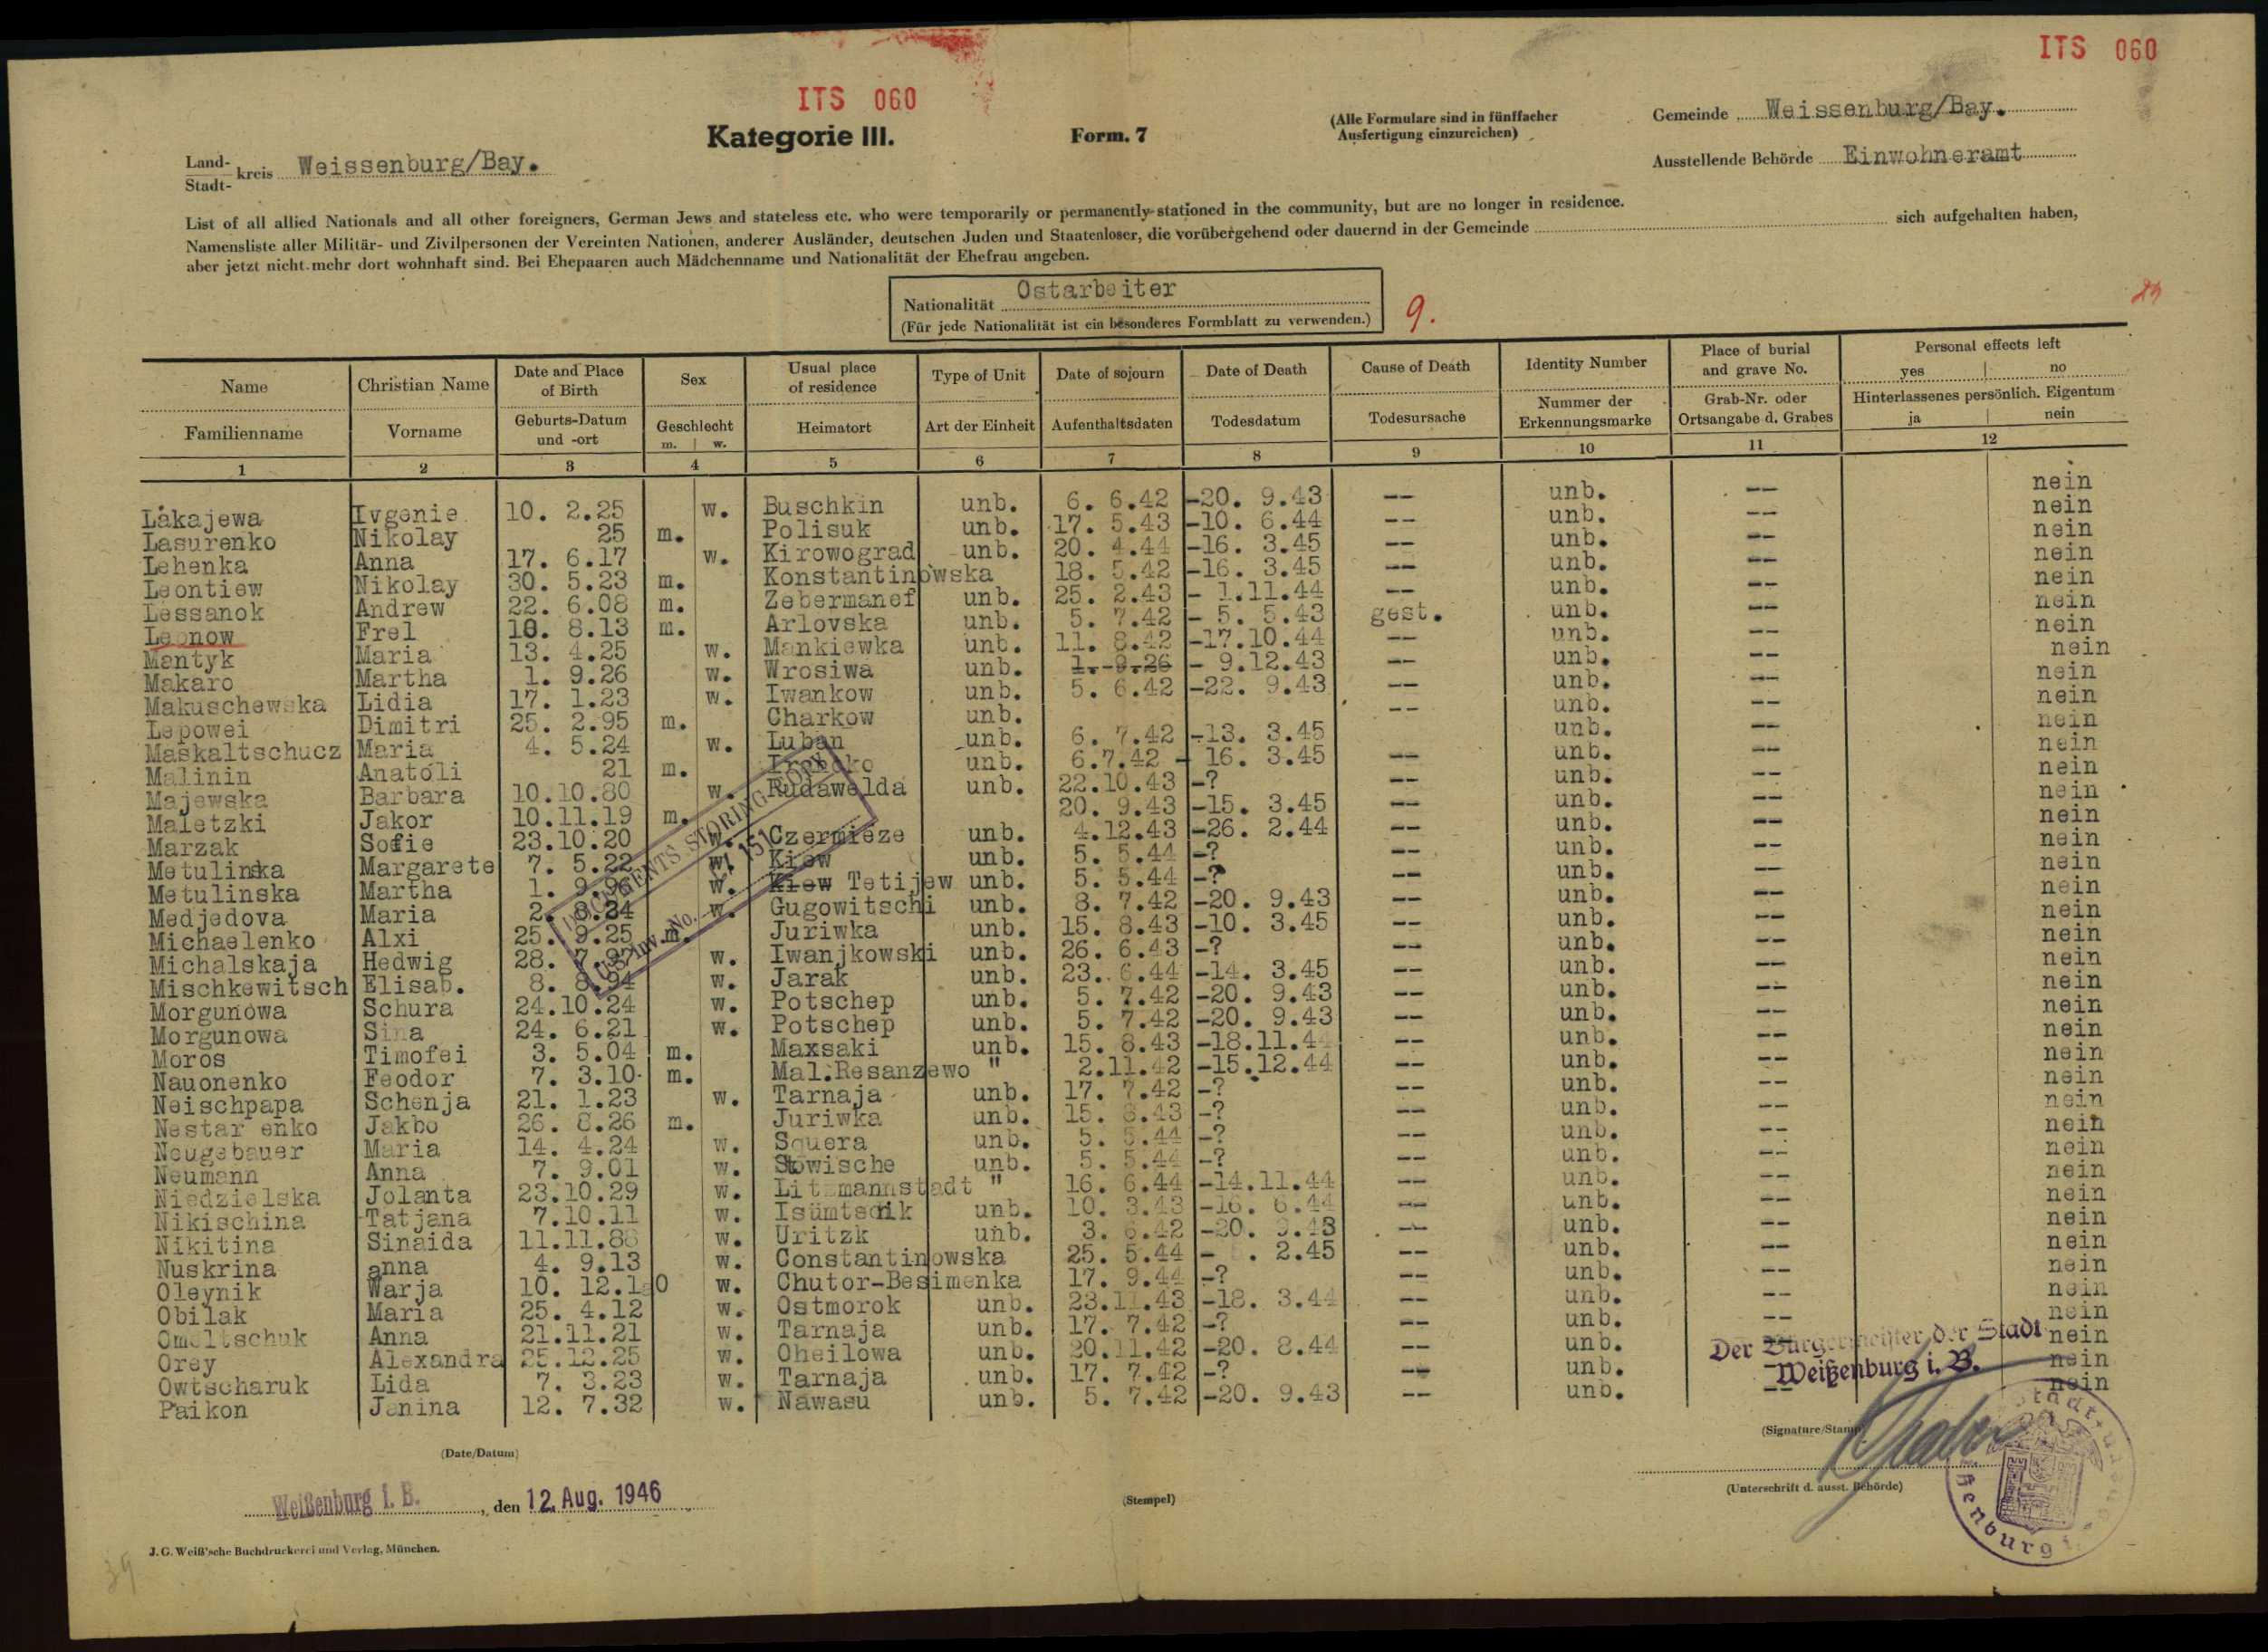 ITS 060
ITS 060
Kategorie III.
Form. 7
(Alle Formulare sind in fünffacher
Ausfertigung einzureichen)
Gemeinde Weissenburg/Bay.
Ausstellende Behörde Einwohneramt
Land-
Stadt- kreis Weissenburg/Bay.
List of all allied Nationals and all other foreigners, German Jews and stateless etc. who were temporarily or permanently stationed in the community, but are no longer in residence.
Namensliste aller Militär- und Zivilpersonen der Vereinten Nationen, anderer Ausländer, deutschen Juden und Staatenloser, die vorübergehend oder dauernd in der Gemeinde sich aufgehalten haben,
aber jetzt nicht mehr dort wohnhaft sind. Bei Ehepaaren auch Mädchenname und Nationalität der Ehefrau angeben.
Nationalität Ostarbeiter
(Für jede Nationalität ist ein besonderes Formblatt zu verwenden.)
9.
Name Christian Name Date and Place of Birth Sex Usual place of residence Type of Unit Date of sojourn Date of Death Cause of Death Identity Number Place of burial and grave No. Personal effects left yes no
Familienname Vorname Geburts-Datum und -ort Geschlecht m. w. Heimatort Art der Einheit Aufenthaltsdaten Todesdatum Todesursache Nummer der Erkennungsmarke Grab-Nr. oder Ortsangabe d. Grabes Hinterlassenes persönlich. Eigentum ja nein
1 2 3 4 5 6 7 8 9 10 11 12
Lakajewa Ivgenie 10. 2.25 w. Buschkin unb. 6. 6.42 -20. 9.43 -- unb. -- nein
Lasurenko Nikolay 25 m. Polisuk unb. 17. 5.43 -10. 6.44 -- unb. -- nein
Lehenka Anna 17. 6.17 w. Kirowograd unb. 20. 4.44 -16. 3.45 -- unb. -- nein
Leontiew Nikolay 30. 5.23 m. Konstantinowska 18. 5.42 -16. 3.45 -- unb. -- nein
Lessanok Andrew 22. 6.08 m. Zebermanef unb. 25. 2.43 - 1.11.44 -- unb. -- nein
Leonow Frel 10. 8.13 m. Arlovska unb. 5. 7.42 - 5. 5.43 gest. unb. -- nein
Mantyk Maria 13. 4.25 w. Mankiewka unb. 11. 8.42 -17.10.44 -- unb. -- nein
Makaro Martha 1. 9.26 w. Wrosiwa unb. 1. 9.26 - 9.12.43 -- unb. -- nein
Makuschewska Lidia 17. 1.23 w. Iwankow unb. 5. 6.42 -22. 9.43 -- unb. -- nein
Lepowei Dimitri 25. 2.95 m. Charkow unb. -- unb. -- nein
Maskaltschucz Maria 4. 5.24 w. Luban unb. 6. 7.42 -13. 3.45 unb. -- nein
Malinin Anatoli 21 m. unb. 6.7.42 - 16. 3.45 -- unb. -- nein
Majewska Barbara 10.10.80 w. Rudawelda unb. 22.10.43 -? -- unb. -- nein
Maletzki Jakor 10.11.19 m. 20. 9.43 -15. 3.45 -- unb. -- nein
Marzak Sofie 23.10.20 w. Czermieze unb. 4.12.43 -26. 2.44 -- unb. -- nein
Metulinska Margarete 7. 5.22 w. Kiew unb. 5. 5.44 -? -- unb. -- nein
Metulinska Martha 1. 9.96 w. Kiew Tetijew unb. 5. 5.44 -? -- unb. -- nein
Medjedova Maria 2. 8.24 w. Gugowitschi unb. 8. 7.42 -20. 9.43 -- unb. -- nein
Michaelenko Alxi 25. 9.25 m. Juriwka unb. 15. 8.43 -10. 3.45 -- unb. -- nein
Michalskaja Hedwig 28. 7.97 w. Iwanjkowski unb. 26. 6.43 -? -- unb. -- nein
Mischkewitsch Elisab. 8. 8.94 w. Jarak unb. 23. 6.44 -14. 3.45 -- unb. -- nein
Morgunowa Schura 24.10.24 w. Potschep unb. 5. 7.42 -20. 9.43 -- unb. -- nein
Morgunowa Sina 24. 6.21 w. Potschep unb. 5. 7.42 -20. 9.43 -- unb. -- nein
Moros Timofei 3. 5.04 m. Maxsaki unb. 15. 8.43 -18.11.44 -- unb. -- nein
Nauonenko Feodor 7. 3.10 m. Mal.Resanzewo " 2.11.42 -15.12.44 -- unb. -- nein
Neischpapa Schenja 21. 1.23 w. Tarnaja unb. 17. 7.42 -? -- unb. -- nein
Nestar enko Jakbo 26. 8.26 m. Juriwka unb. 15. 8.43 -? -- unb. -- nein
Neugebauer Maria 14. 4.24 w. Squera unb. 5. 5.44 -? -- unb. -- nein
Neumann Anna 7. 9.01 w. Stowische unb. 5. 5.44 -? -- unb. -- nein
Niedzielska Jolanta 23.10.29 w. Litzmannstadt " 16. 6.44 -14.11.44 -- unb. -- nein
Nikischina Tatjana 7.10.11 w. unb. 10. 3.43 -16. 6.44 -- unb. -- nein
Nikitina Sinaida 11.11.88 w. Uritzk unb. 3. 6.42 -20. 9.43 -- unb. -- nein
Nuskrina anna 4. 9.13 w. Constantinowska 25. 5.44 - . 2.45 -- unb. -- nein
Oleynik Warja 10. 12. w. Chutor-Besimenka 17. 9.44 -? -- unb. -- nein
Obilak Maria 25. 4.12 w. Ostmorok unb. 23.11.43 -18. 3.44 -- unb. -- nein
Omeltschuk Anna 21.11.21 w. Tarnaja unb. 17. 7.42 -? -- unb. nein
Orey Alexandra 25.12.25 w. Oheilowa unb. 20.11.42 -20. 8.44 -- unb. -- nein
Owtscharuk Lida 7. 3.23 w. Tarnaja unb. 17. 7.42 -? -- unb. -- nein
Paikon Janina 12. 7.32 w. Nawasu unb. 5. 7.42 -20. 9.43 -- unb. -- nein
DOCUMENTS STORING ROOM
Inv. No. 151
Der Bürgermeister der Stadt
Weißenburg i. B.
(Signature/Stamp)
(Date/Datum)
Weißenburg i. B., den 12. Aug. 1946
(Stempel)
(Unterschrift d. ausst. Behörde)
J. G. Weiß'sche Buchdruckerei und Verlag, München.